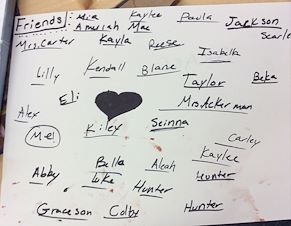 Friends: Mia Kaylee Paula Jackson
Amuriah Mae Scarle
Mrs. Carter Kayla Reese Isabella
Lilly Kendall Blane Taylor Beka
Eli Mrs. Ackerman
Alex Kiley Seinna
Me! Carley
Kaylee
Abby Bella Aleah Hunter
Luke Hunter
Graceson Colby Hunter